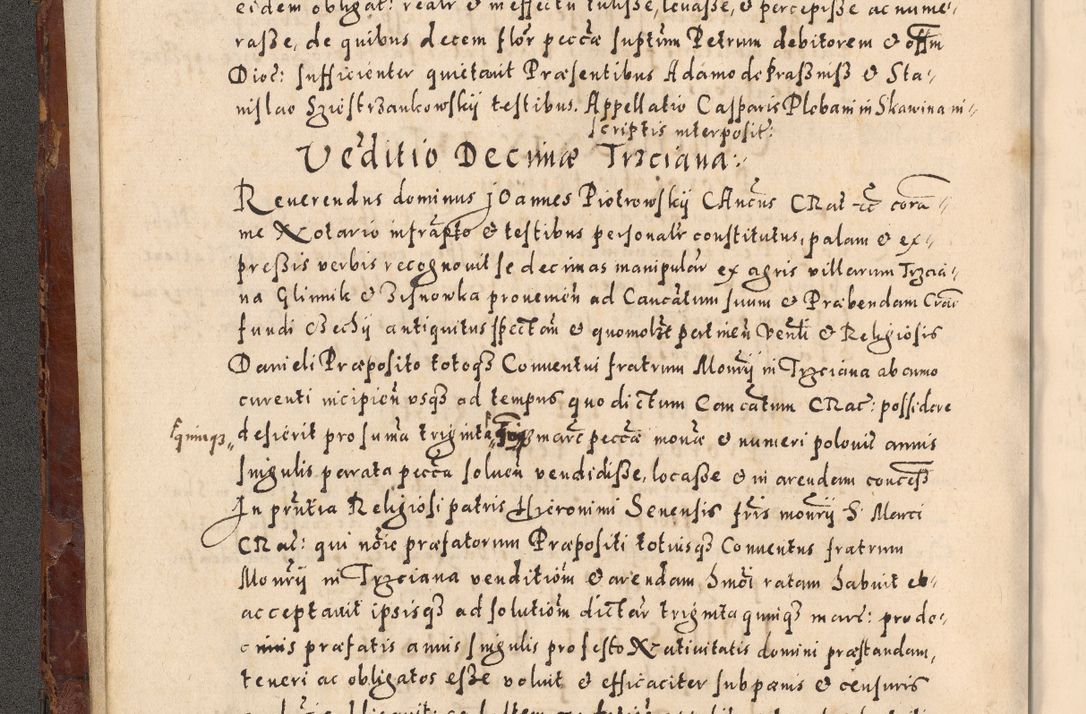 eidem obligat: realr & in effectu tulisse, leuasse, & percepisse ac nume-
rasse, de quibus decem flor peccæ suptum Petrum debitorem & offm
Dioc: sufficienter quietauit Præsentibus Adamo de Krassniss & Sta-
nislao Sziostrzankowskij testibus. Appellatio Casparis Plobani in Skawina in-
scriptis interposit:
Veditio Decimæ Trzciana:
Reuerendus dominus Joannes Piotrowskij CAncus CRac etc cora
me Notario infrapto & testibus personalr constitutus, palam & ex-
pressis verbis recognouit se decimas manipular ex agris villarum Trzcia-
na Glinnik & Zisnowka prouenien ad Cancatum suum & Præbendam Crac
fundi Czechij antiquitus spectan & quomolzt pertinen Venli & Religiosis
Danieli Præposito totoqz Conuentui fratrum Monrij in Trzciana ab anno
curenti incipien vsqz ad tempus quo dictum Cancatum CRac: possidere
quinqz desierit pro suma triginta marc peccæ monæ & numeri polonic annis
singulis per rata pecca soluen vendidisse, locasse & in arendam concess
In prntia Religiosi patris Hieronimi Senensis fris monrij S. Marci
CRac: qui noie præfatorum Præpositi totiusqz Conuentus fratrum
Monrij in Trzciana venditiom & arendam hmoi ratam habuit et
acceptauit ipsisqz ad solutiom dictar triginta quinqz marc: pro de-
cimis præfatis annis singulis pro festo Natiuitatis domini præstandam,
teneri ac obligatos esse voluit & efficaciter sub pænis & censuris